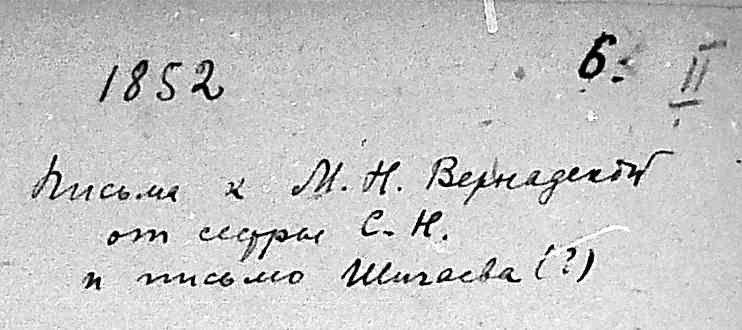 1852 6. II
Письма к М. Н. Вернадской
от сестры С. Н.
и письмо Шигаева (?)